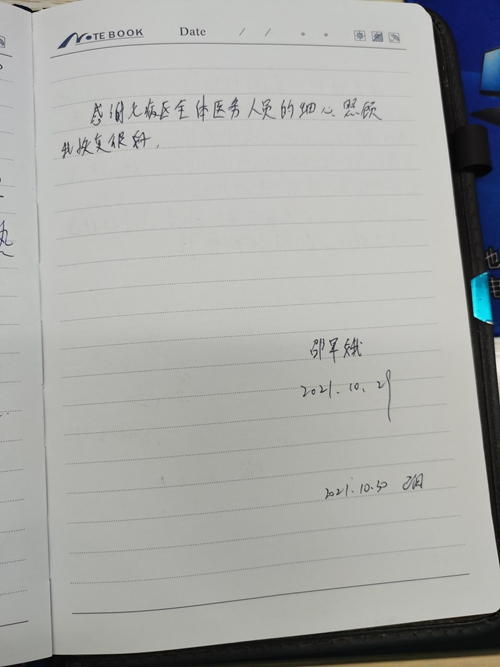 NOTE BOOK Date / /
感谢七病区全体医务人员的细心照顾
我恢复很好.
邵军娥
2021.10.29
2021.10.30 已阅
也